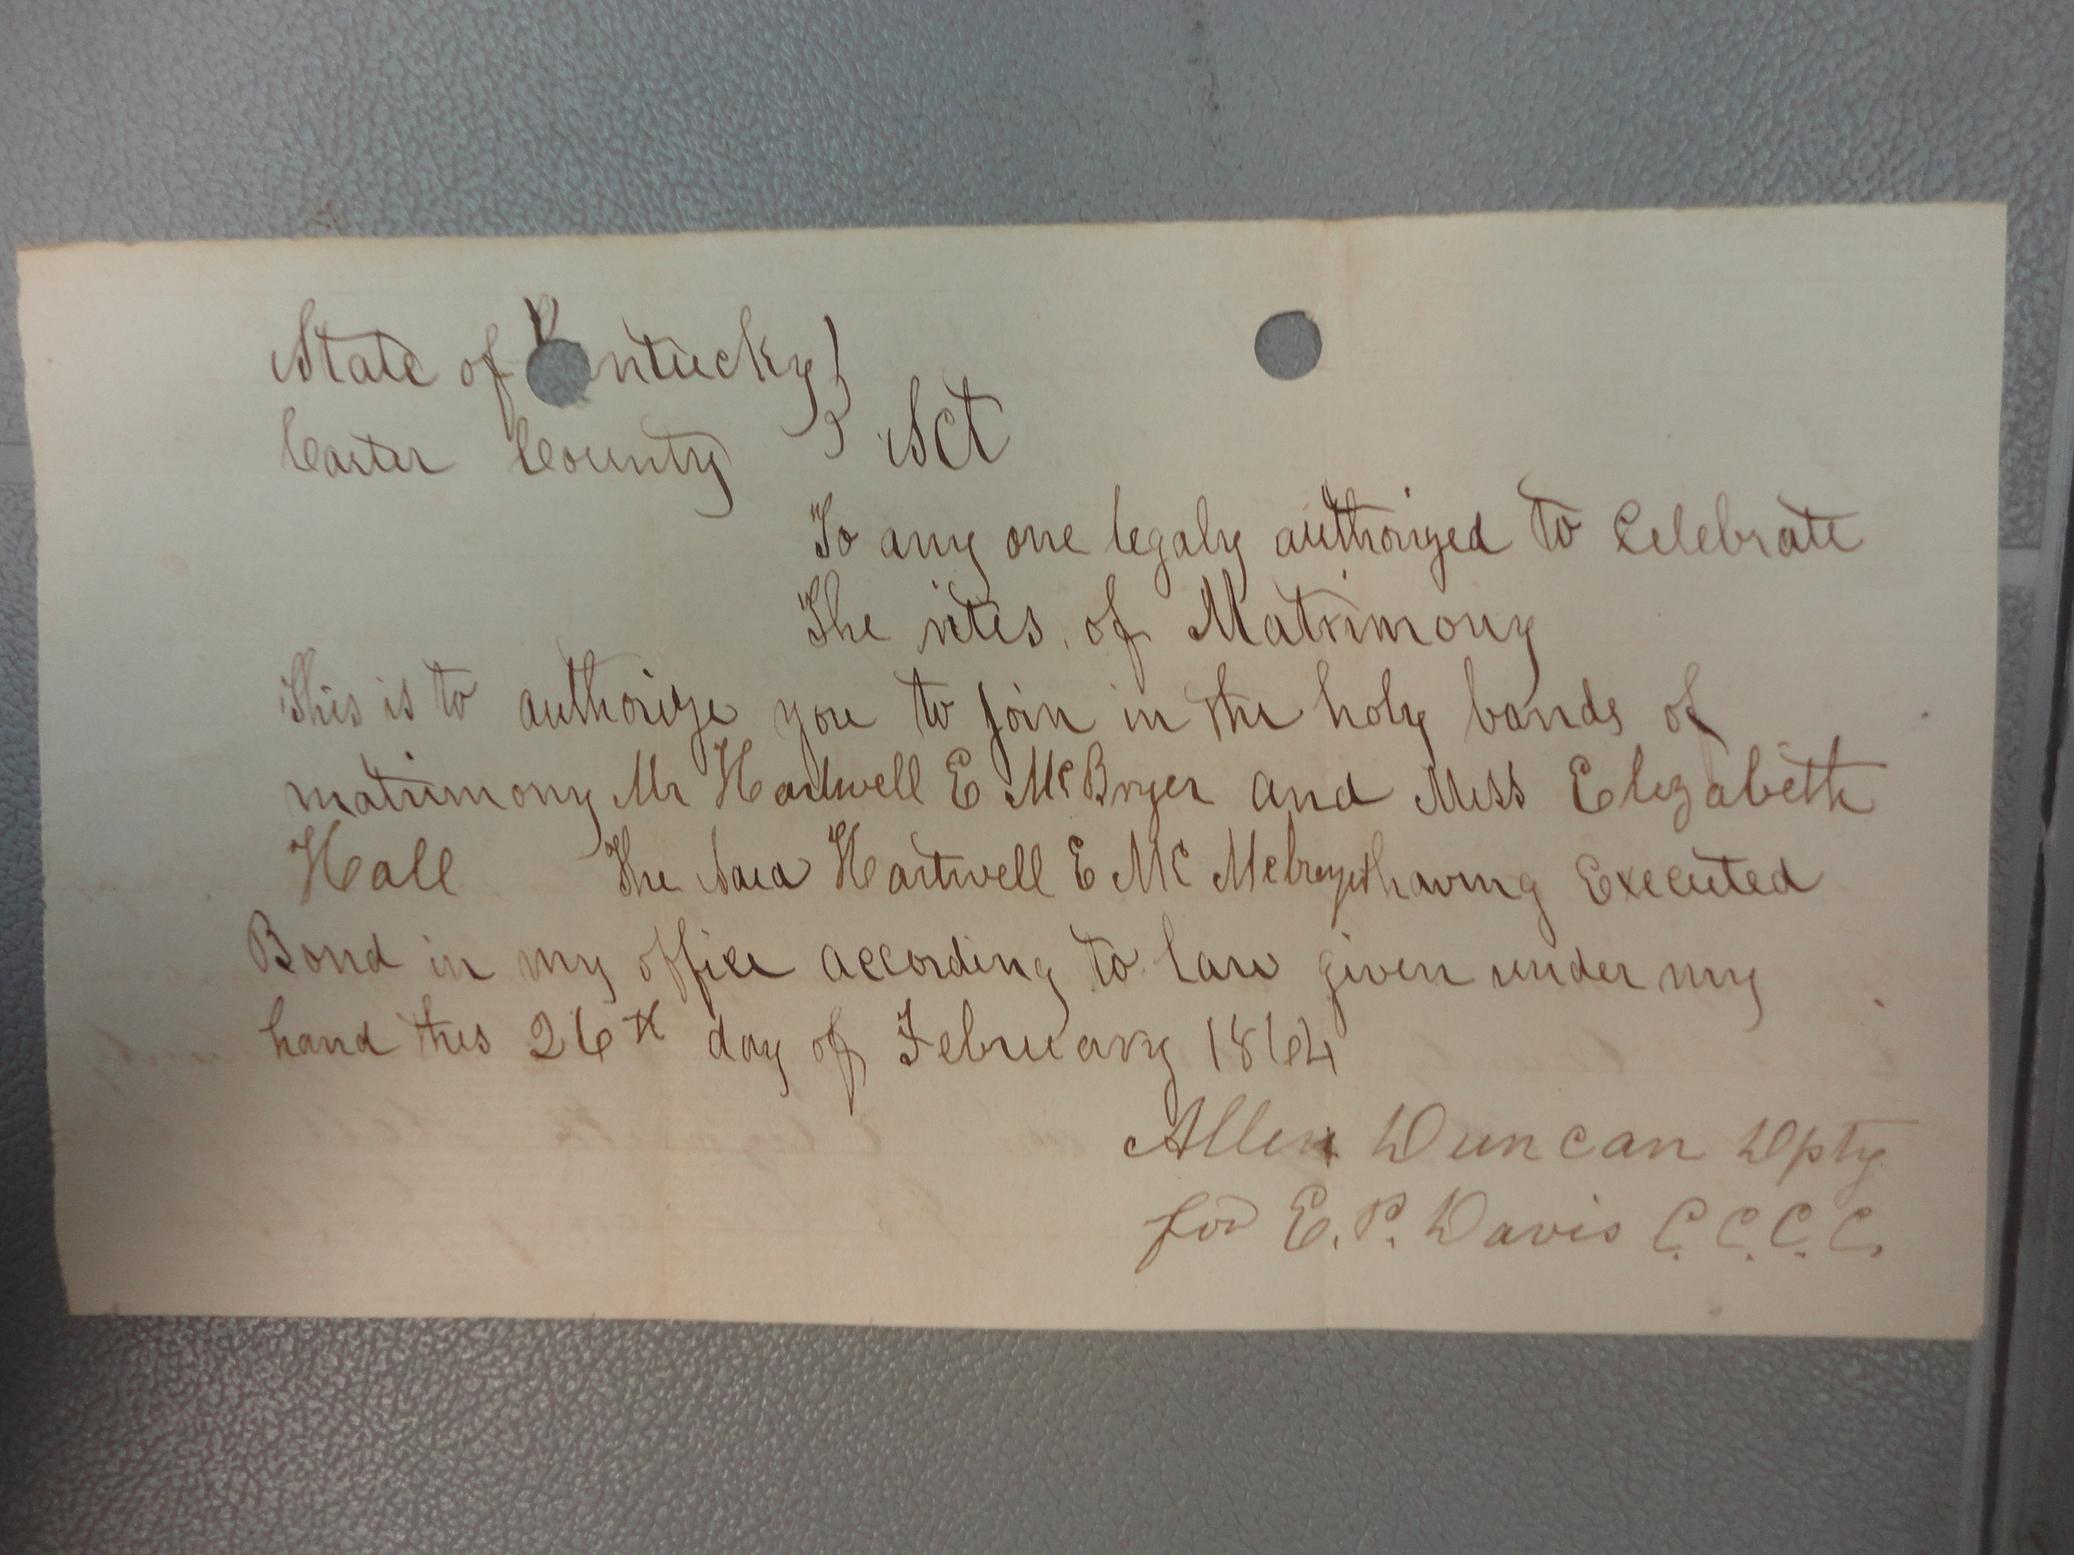 State of Kentucky }
Carter County } Sct
To any one legaly authorized to Celebrate
The rites of Matrimony
This is to authorize you to join in the holy bands of
matrimony Mr Hartwell E McBryer and Miss Elizabeth
Hall The Said Hartwell E Mc Mcbryer having Executed
Bond in my office according to law given under my
hand this 26th day of February 1864
Allen Duncan Dpty
for E. P. Davis C. C. C. C.